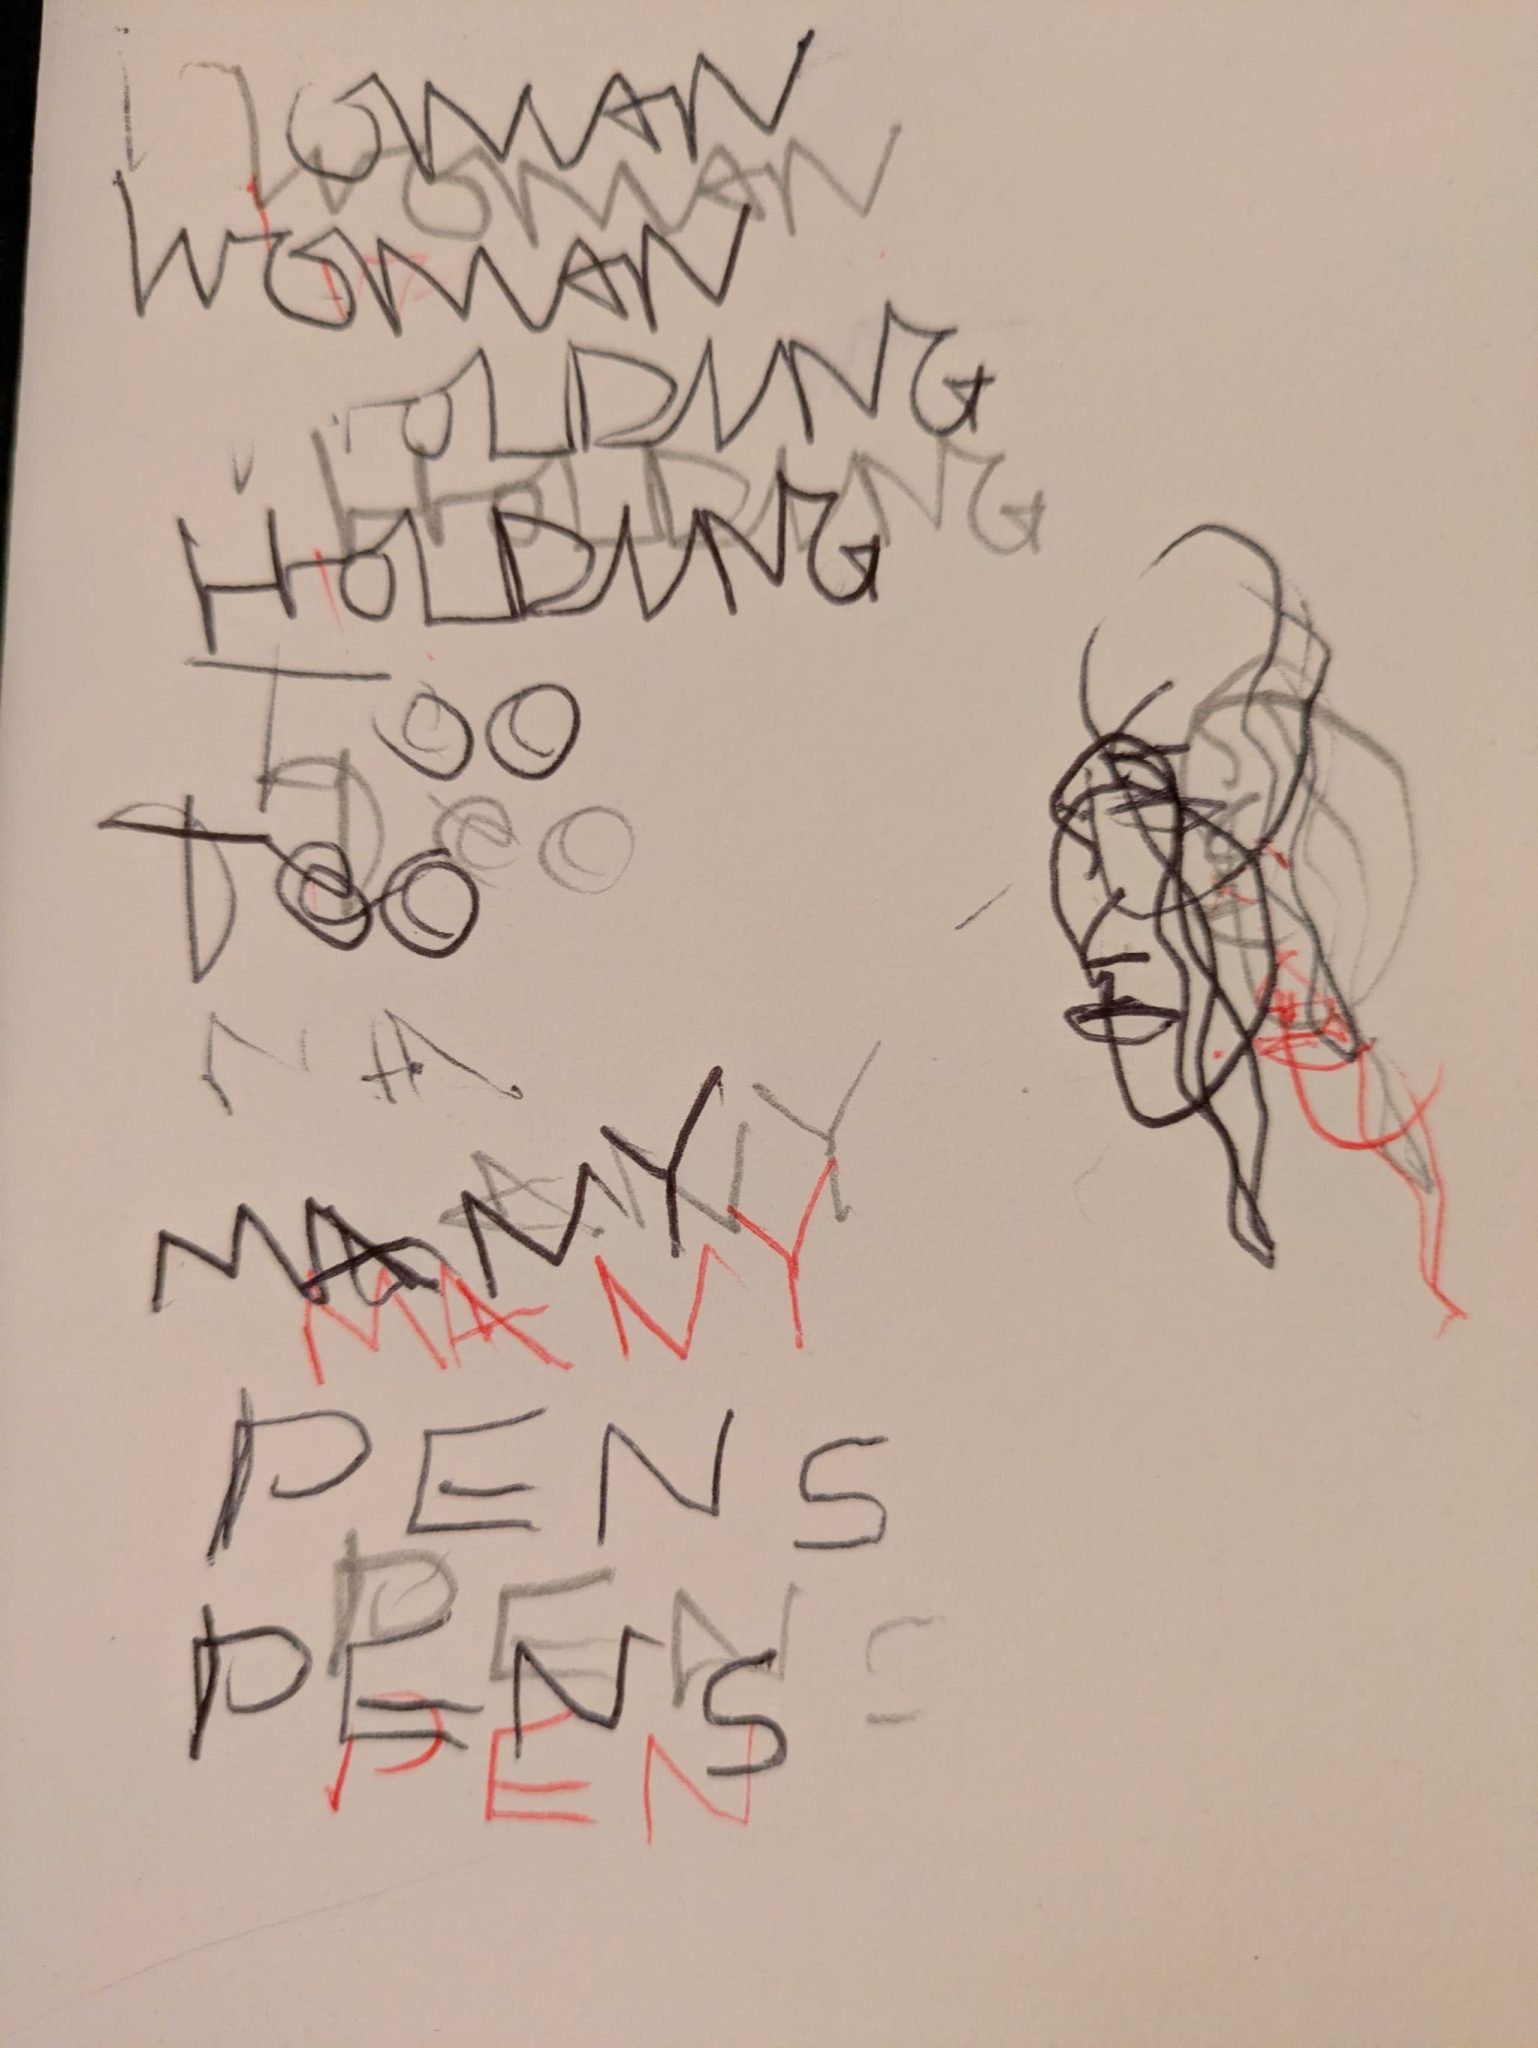 WOMAN
WOMAN
WOMAN
HOLDING
HOLDING
HOLDING
TOO
TOO
TOO
ANY
MANY
MANY
PENS
PENS
PENS
PEN